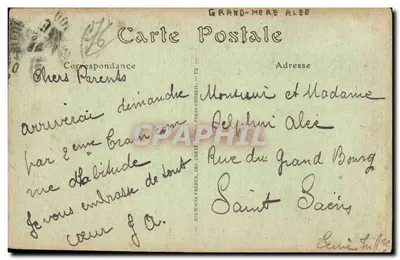 GRAND-MERE ALEE
Carte Postale
Correspondance
Adresse
Chers Parents
arriverai dimanche
par 2eme train
me
Je vous embrasse de tout
coeur J A.
Monsieur et Madame
Delphin Alee
Rue du Grand Bourg
Saint Saëns
CPARAMA